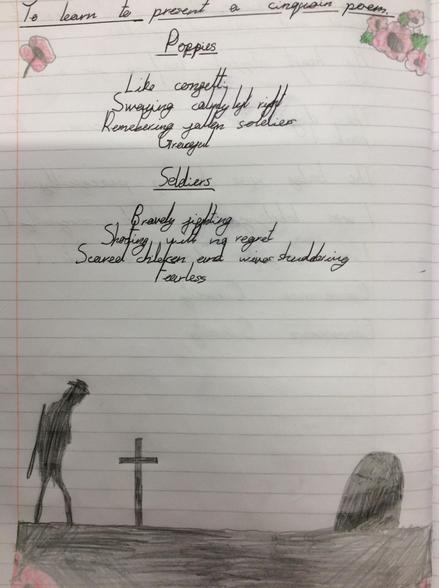 To learn to present a cinquain poem.
Poppies
Like confetti,
Swaying calmly left right
Remebering fallen soldiers
Graceful
Soldiers
Bravely fighting
Shooting with no regret
Scared children and wives shuddering
Fearless